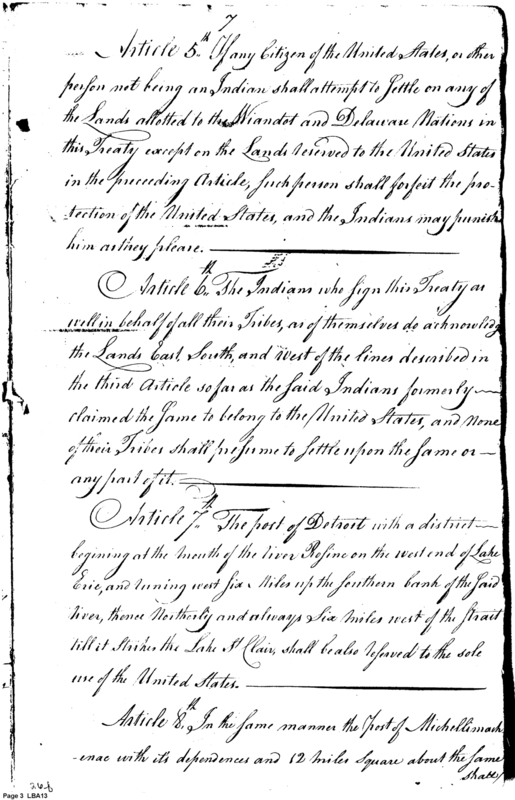 7
Article 5th If any Citizen of the United States, or other
person not being an Indian shall attempt to Settle on any of
the Lands allotted to the Wiandot and Delaware Nations in
this Treaty except on the Lands reserved to the United States
in the preceeding Article, Such person shall forfeit the pro-
tection of the United States, and the Indians may punish
him as they please.
Article 6th The Indians who sign this Treaty as
well in behalf of all their Tribes, as of themselves do acknowledg
the Lands East, South, and west of the lines described in
the third Article so far as the Said Indians formerly
claimed the Same to belong to the United States, and None
of their Tribes shall presume to Settle upon the Same or
any part of it.
Article 7th The post of Detroit with a district
begining at the Mouth of the river Rosine on the west end of Lake
Erie, and runing west Six Miles up the Southern bank of the Said
river, thence Northerly and always Six miles west of the Strait
till it Strikes the Lake St Clair, shall be also reserved to the sole
use of the United States.
Article 8th In the Same manner the Post of Michellimach
-enac with its dependences and 12 miles Square about the Same
shall
Page 3 LBA13